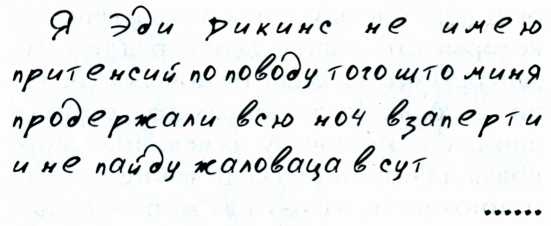 Я Эди Рикинс не имею
притенсий по поводу того што миня
продержали всю ноч взаперти
и не пайду жаловаца в сут
.......